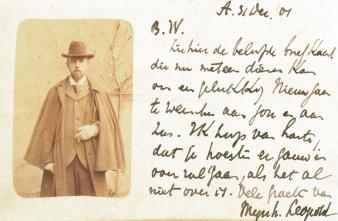 A. 31 Dec. 01
B. W.
Zie hier de beloofde briefkaart
die nu meteen dienen kan
om een gelukkig Nieuwjaar
te wenschen aan jou en aan
Zus. Ik hoop van harte,
dat je hoesten er gauw
over zal gaan, als het al
niet over is. Vele groeten van
Meyr. h. Leopold